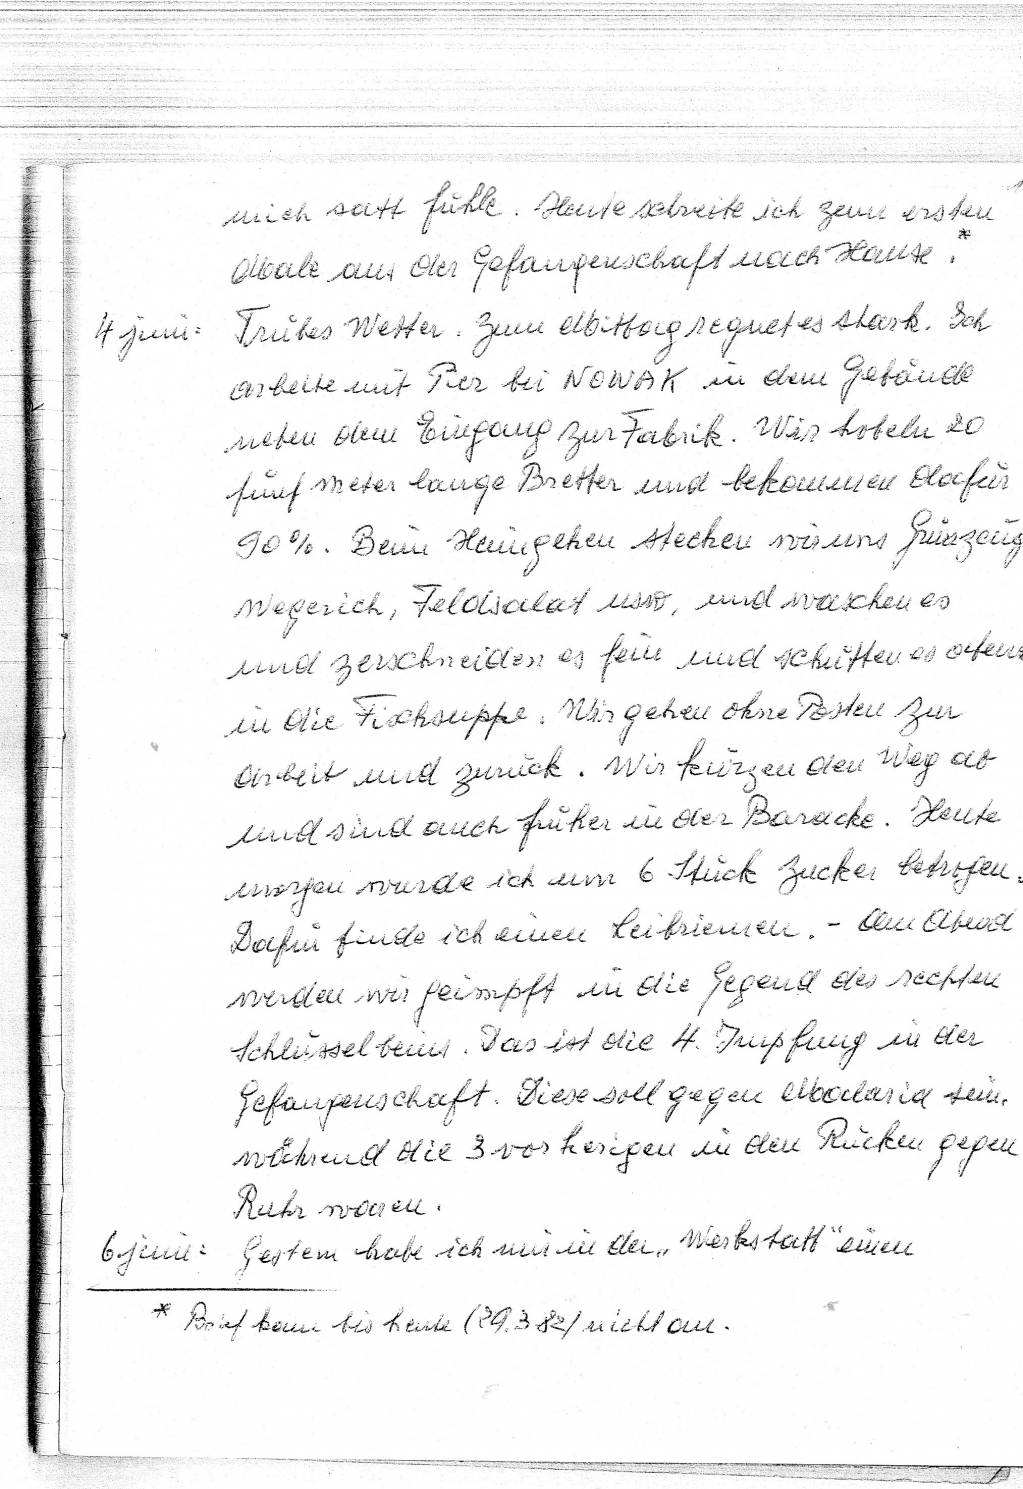 mich satt fühle. Heute schreibe ich zum ersten
Male aus der Gefangenschaft nach Hause.*
4 juni: Trübes Wetter. Zum Mittag regnet es stark. Ich
arbeite mit Pier bei NOWAK in dem Gebäude
neben dem Eingang zur Fabrik. Wir hobeln 20
fünf Meter lange Bretter und bekommen dafür
90%. Beim Heimgehen stecken wir uns Grünzeug
Wegerich, Feldsalat usw, und waschen es
und zerschneiden es fein und schütten es abends
in die Fischsuppe. Wir gehen ohne Posten zur
Arbeit und zurück. Wir kürzen den Weg ab
und sind auch früher in der Baracke. Heute
morgen wurde ich um 6 Stück Zucker betrogen.
Dafür finde ich einen Leibriemen. - Am Abend
werden wir geimpft in die Gegend des rechten
Schlüsselbeins. Das ist die 4. Impfung in der
Gefangenschaft. Diese soll gegen Malaria sein,
während die 3 vorherigen in den Rücken gegen
Ruhr waren.
6 juni: Gestern habe ich mir in der „Werkstatt" einen
* Brief kam bis heute (29.3 82) nicht an.